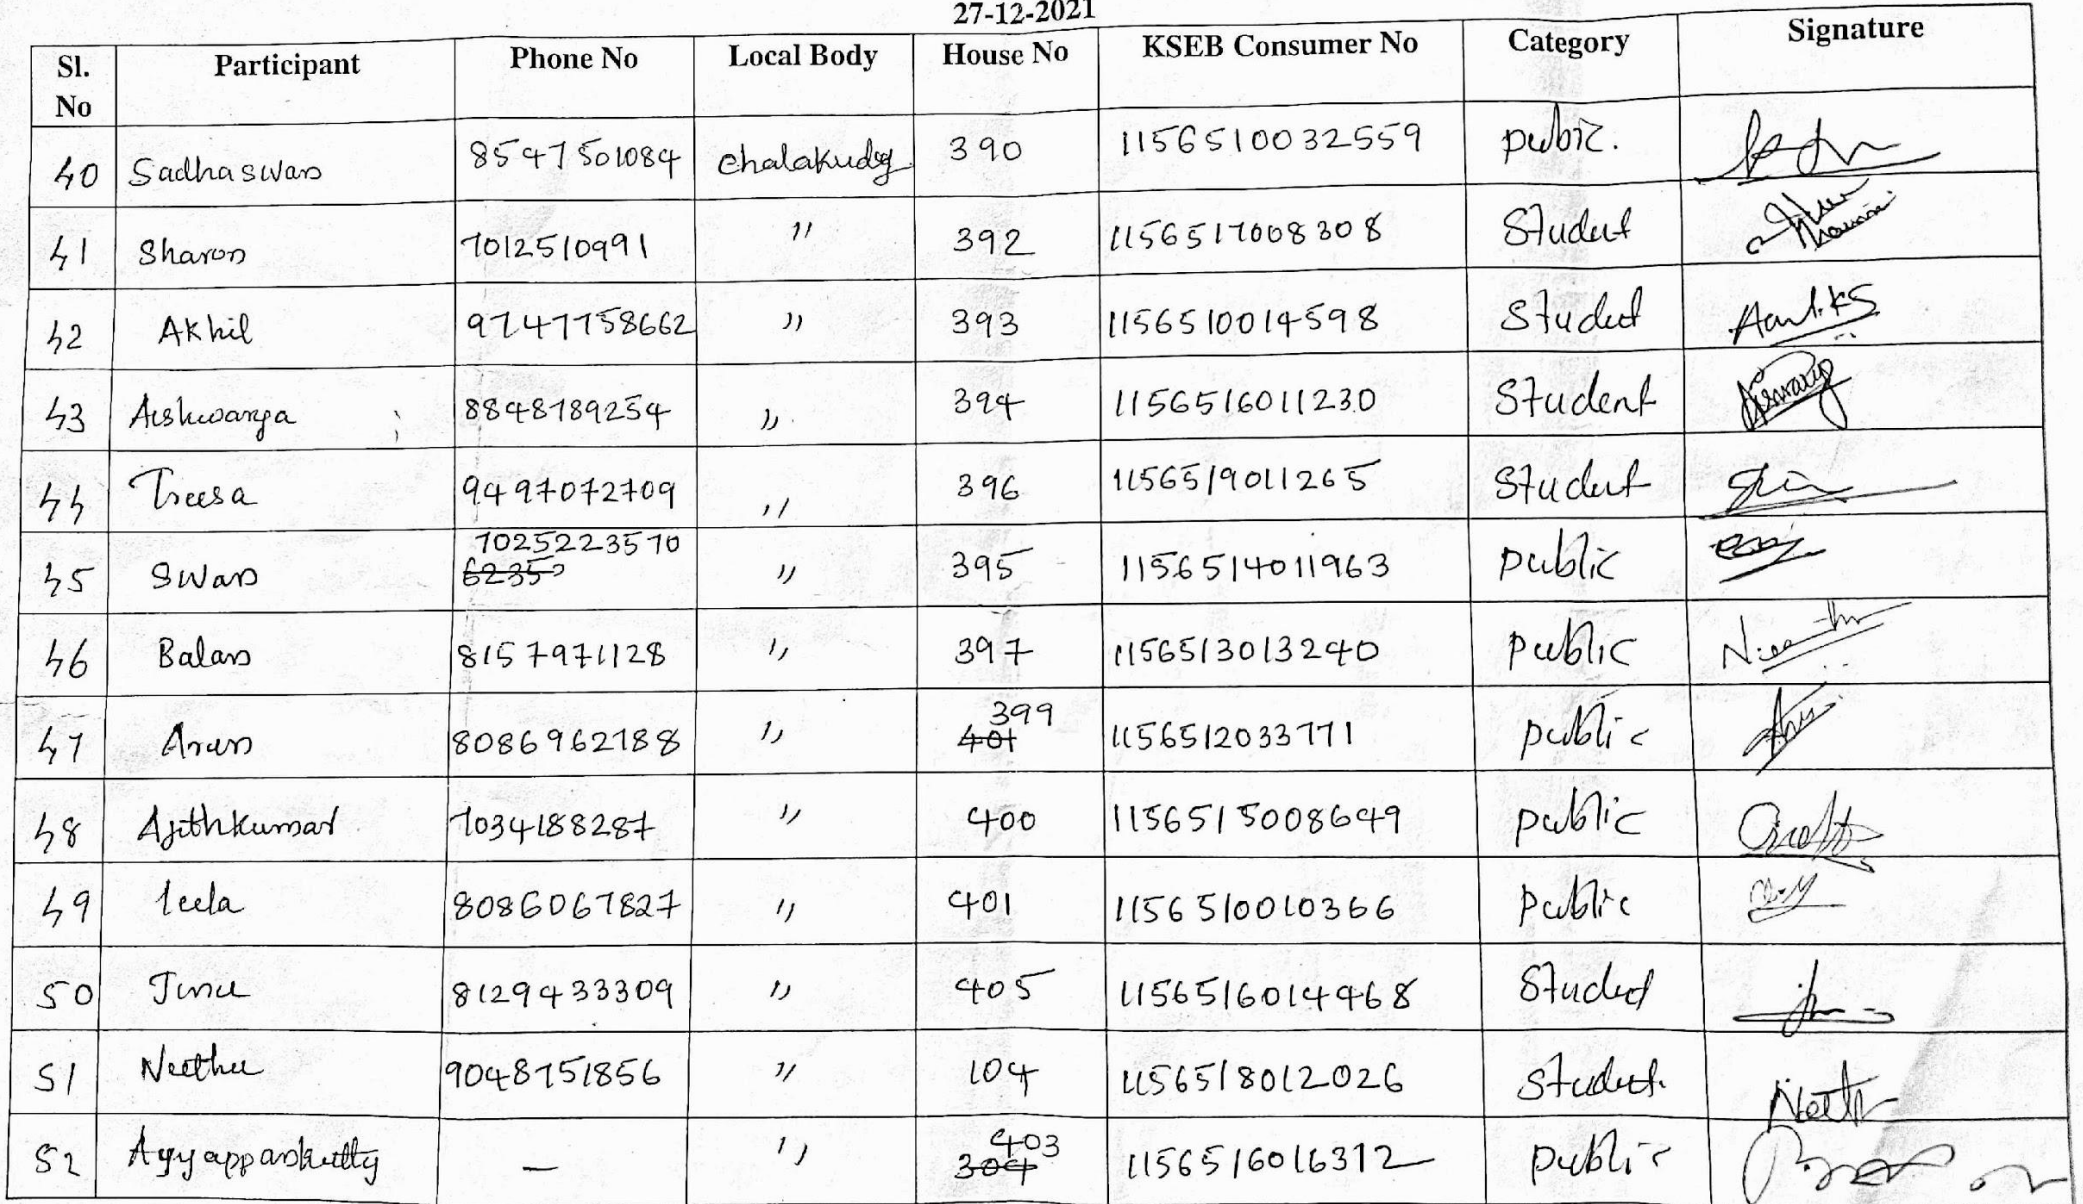 27-12-2021
Sl. No Participant Phone No Local Body House No KSEB Consumer No Category Signature
40 Sadhaswan 8547501084 chalakudy 390 1156510032559 pubic.
41 Sharon 7012510991 " 392 1156517008308 Student
42 Akhil 9747758662 " 393 1156510014598 Student
43 Aishwarya 8848789254 " 394 1156516011230 Student
44 Treesa 9497072709 " 396 1156519011265 Student
45 Swan 7025223570 6235 " 395 1156514011963 public
46 Balan 8157971128 " 397 1156513013240 public
47 Arun 8086962788 " 399 401 1156512033771 public
48 Ajithkumar 7034188287 " 400 1156515008649 public
49 leela 8086067827 " 401 1156510010366 public
50 Jinu 8129433309 " 405 1156516014468 Student
51 Neethu 9048751856 " 104 1156518012026 Student. Neethu
52 Ayyappankutty — " 403 304 1156516016312 public